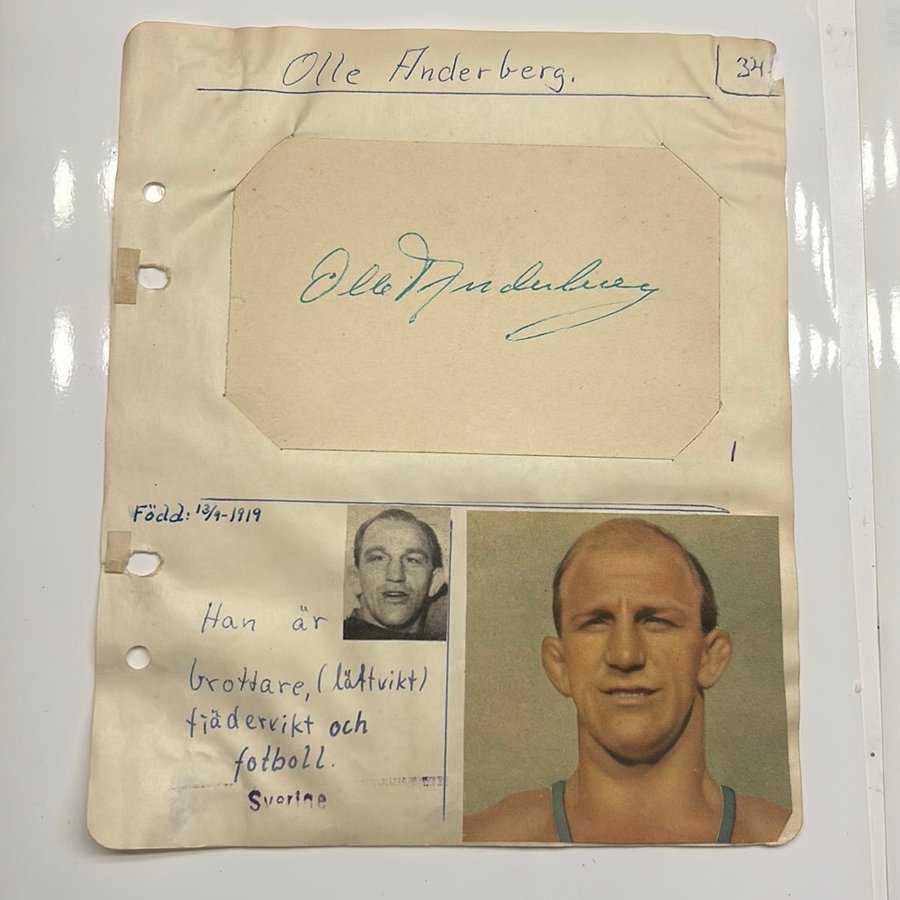 Olle Anderberg.
34
Olle Anderberg
1
Född: 13/9-1919
Han är
brottare, (lättvikt)
fjädervikt och
fotboll.
Sverige